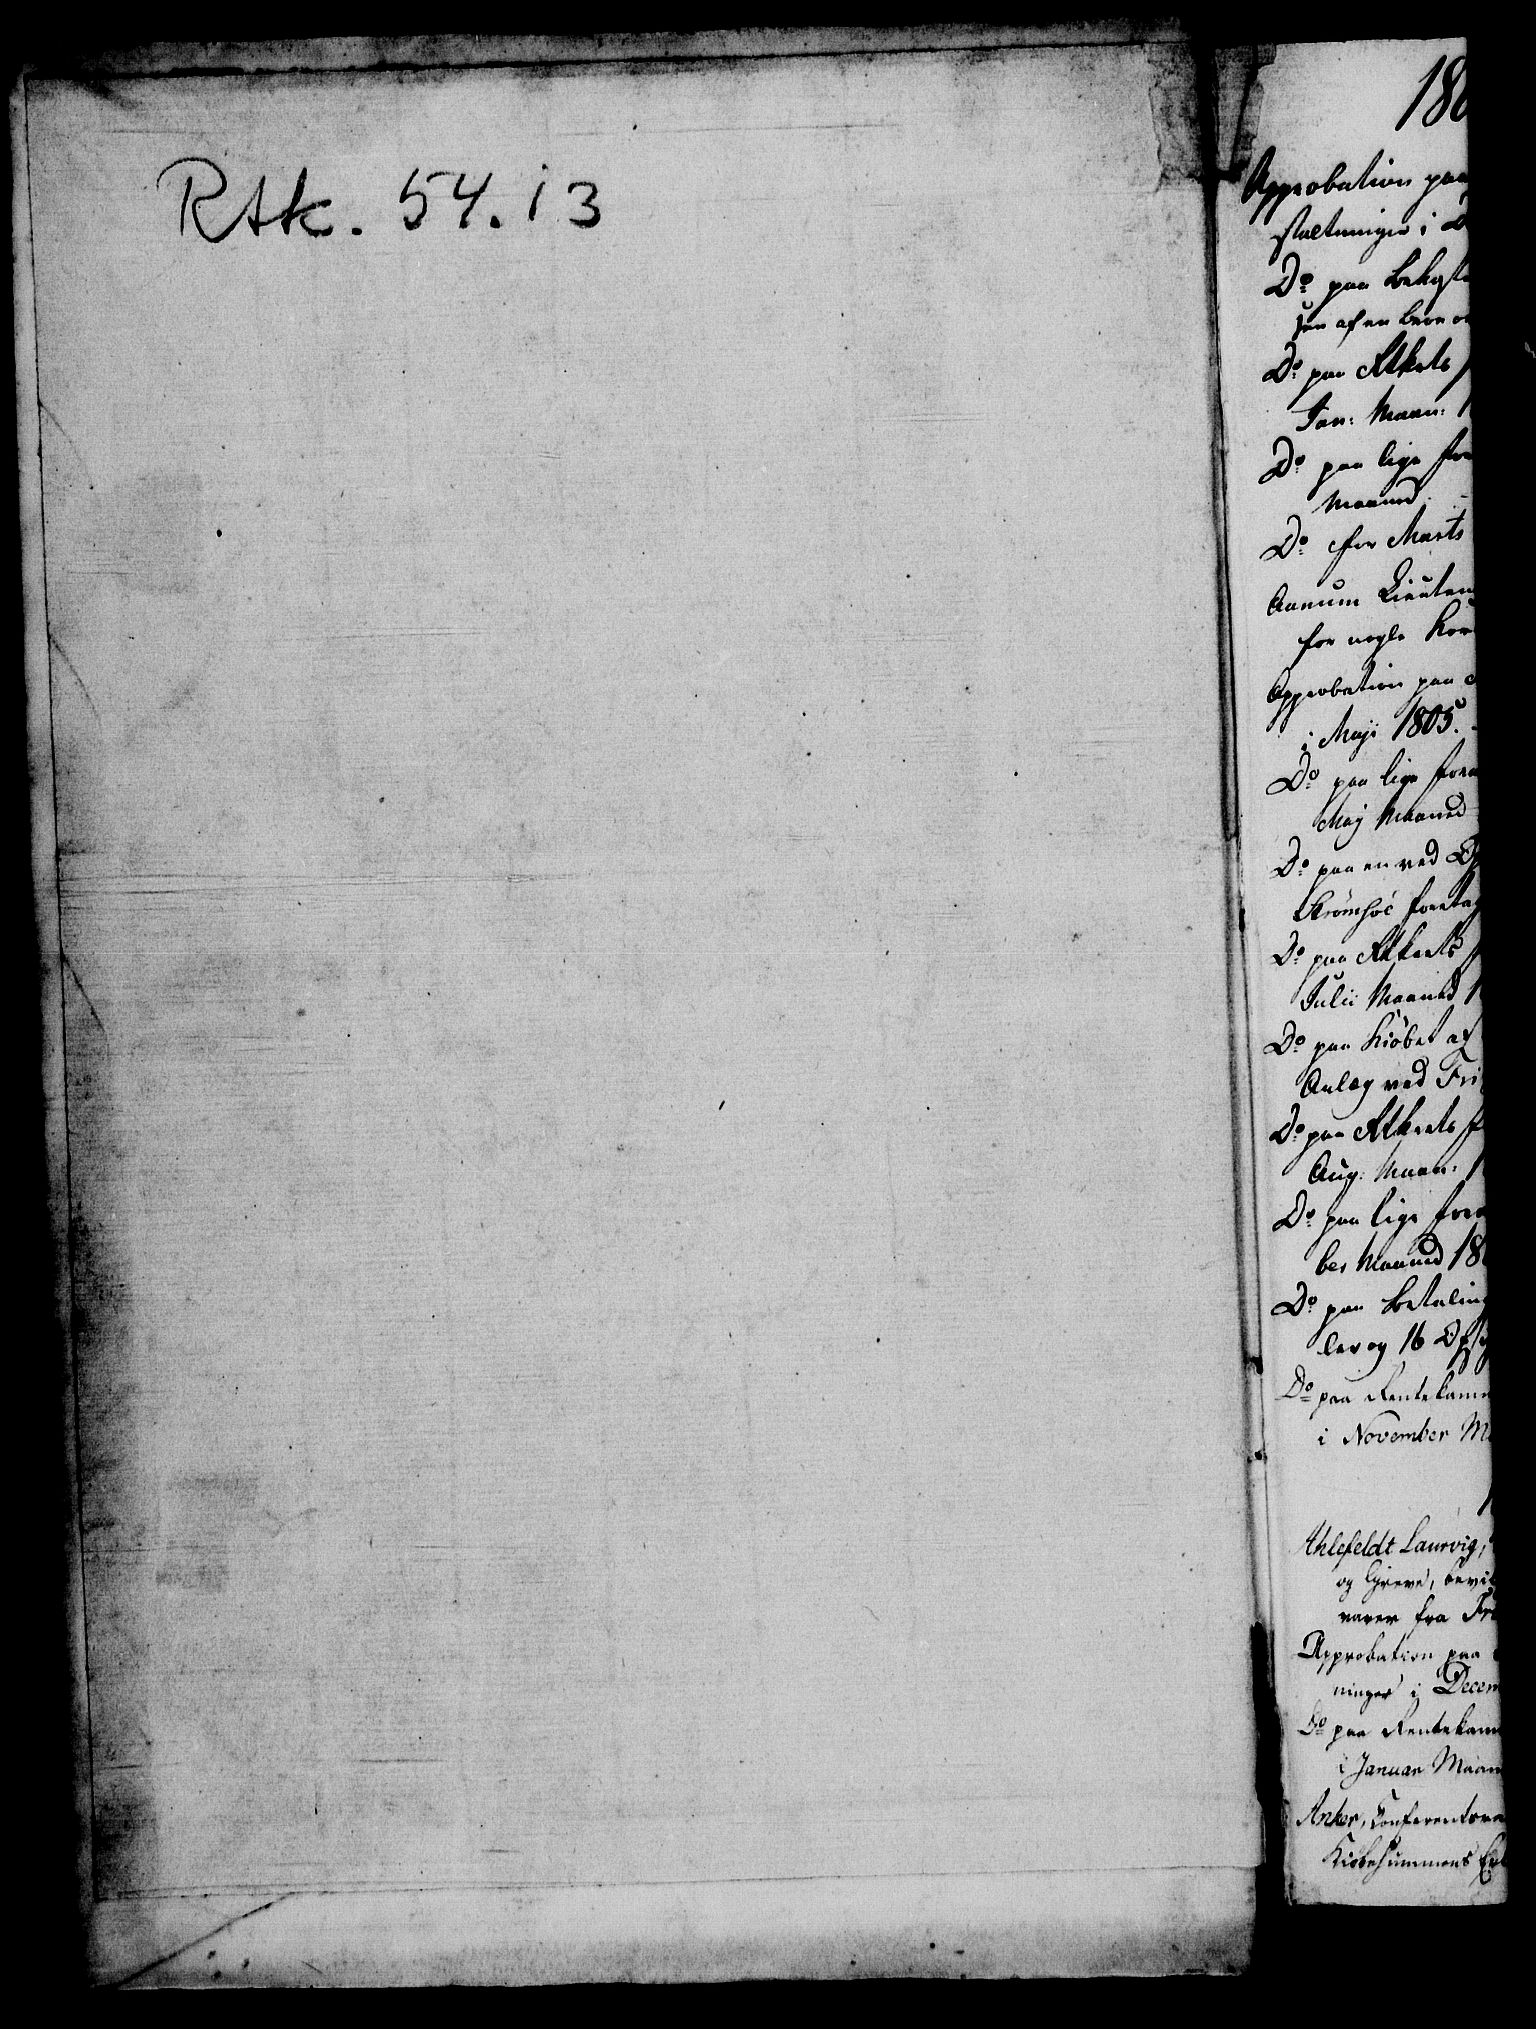 Rtk. 54.13
180
Approbation paa
staltninger i D
Do paa Bekost
sen af en
Do paa Rtkets
Jan: Maan: 1
Do paa lige for
Maaned
Do for Marts
Annum Lieuten
for nogle Kor
Approbation paa
i Maji 1805.
Do paa lige fora
Maj Maaned
Do paa en ved
Strömsöe foretag
Do paa Rtkrets
Julii Maaned 1
Do paa Kiöbet af
Anlæg ved Fri
Do paa Rtkrets f
Aug: Maan: 1
Do paa lige fora
ber Maaned 18
Do paa Betaling
lav og 16
Do paa Rentekamm
i November M
Ahlefeldt Laurvig,
og Greve, bevi
varer fra Fr
Approbation paa
ninger i Decem
Do paa Rentekam
i Januar Maan
Anker, Conferentsra
Kiöbesummens